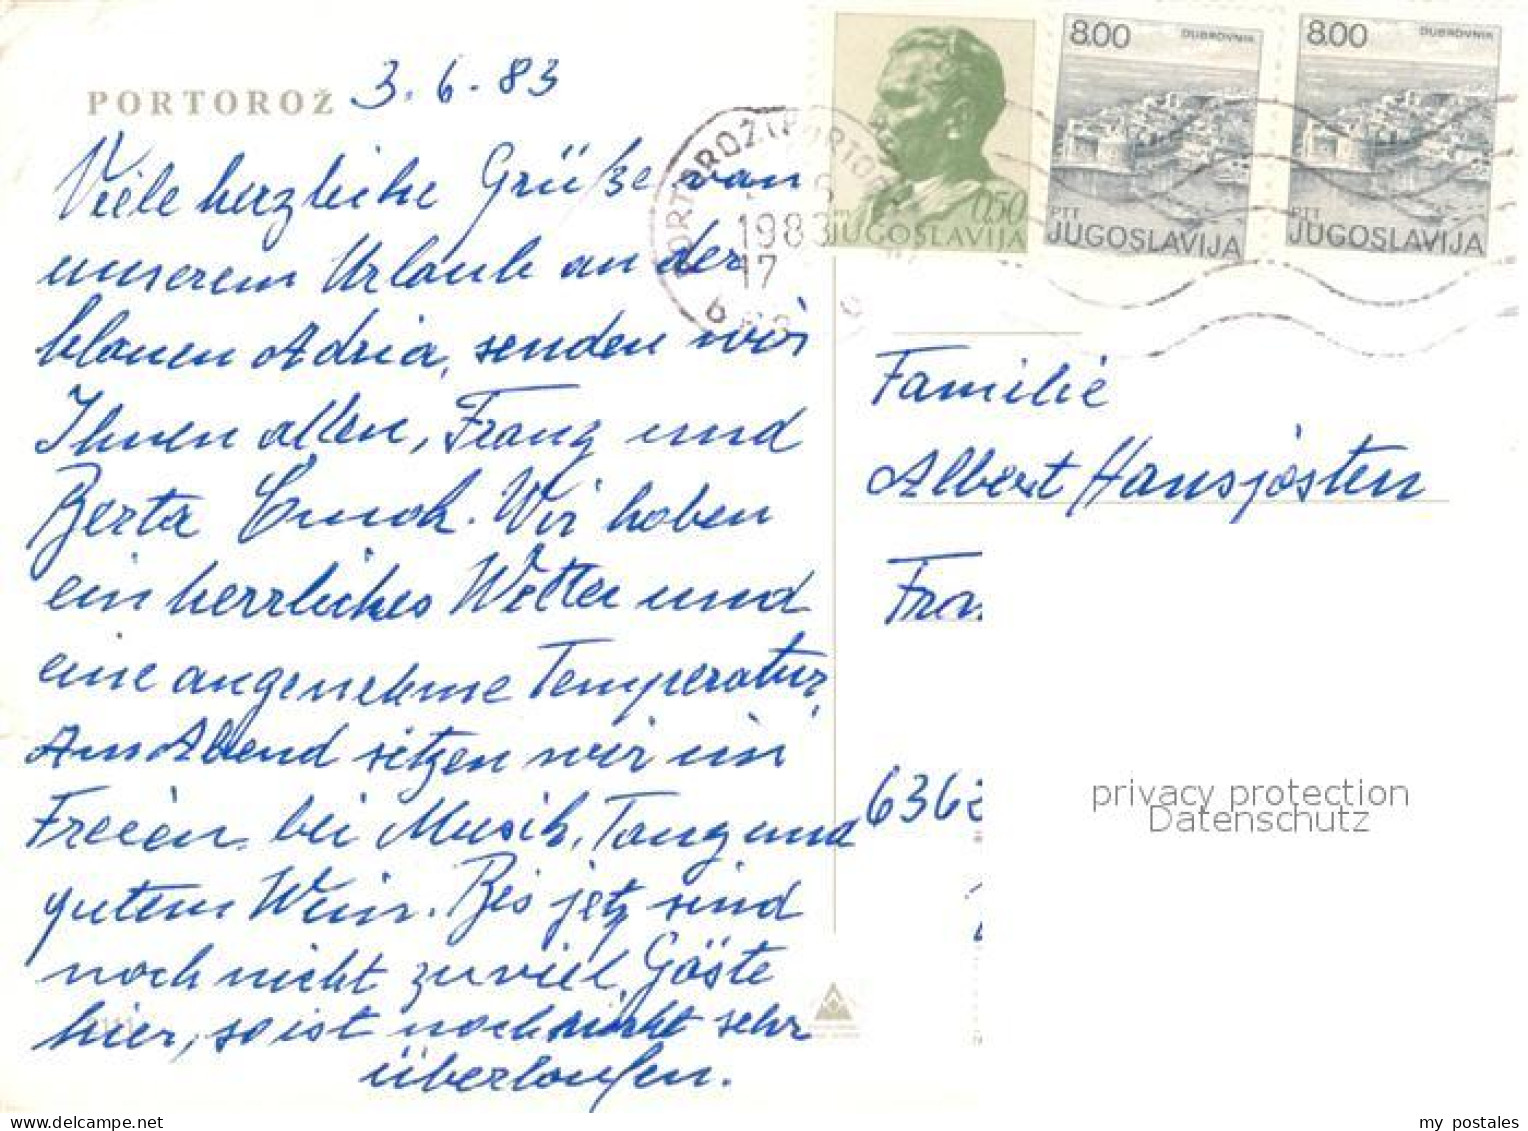 PORTOROŽ 3.6.83
Viele herzliche Grüße von
unserem Urlaub an der
blauen Adria, senden wir
Ihnen allen, Franz und
Berta. Wir haben
ein herrliches Wetter und
eine angenehme Temperatur,
Am Abend sitzen wir im
Freien bei Musik, Tanz und
gutem Wein. Bis jetz sind
noch nicht zuviel Gäste
hier, so ist noch nicht sehr
überlaufen.
PORTOROŽ (PORTOR
1983
17
6
0,50
JUGOSLAVIJA
8.00 DUBROVNIK
PTT
JUGOSLAVIJA
8.00 DUBROVNIK
PTT
JUGOSLAVIJA
Familie
Albert Hansjosten
Fra
636
privacy protection
Datenschutz
my postales